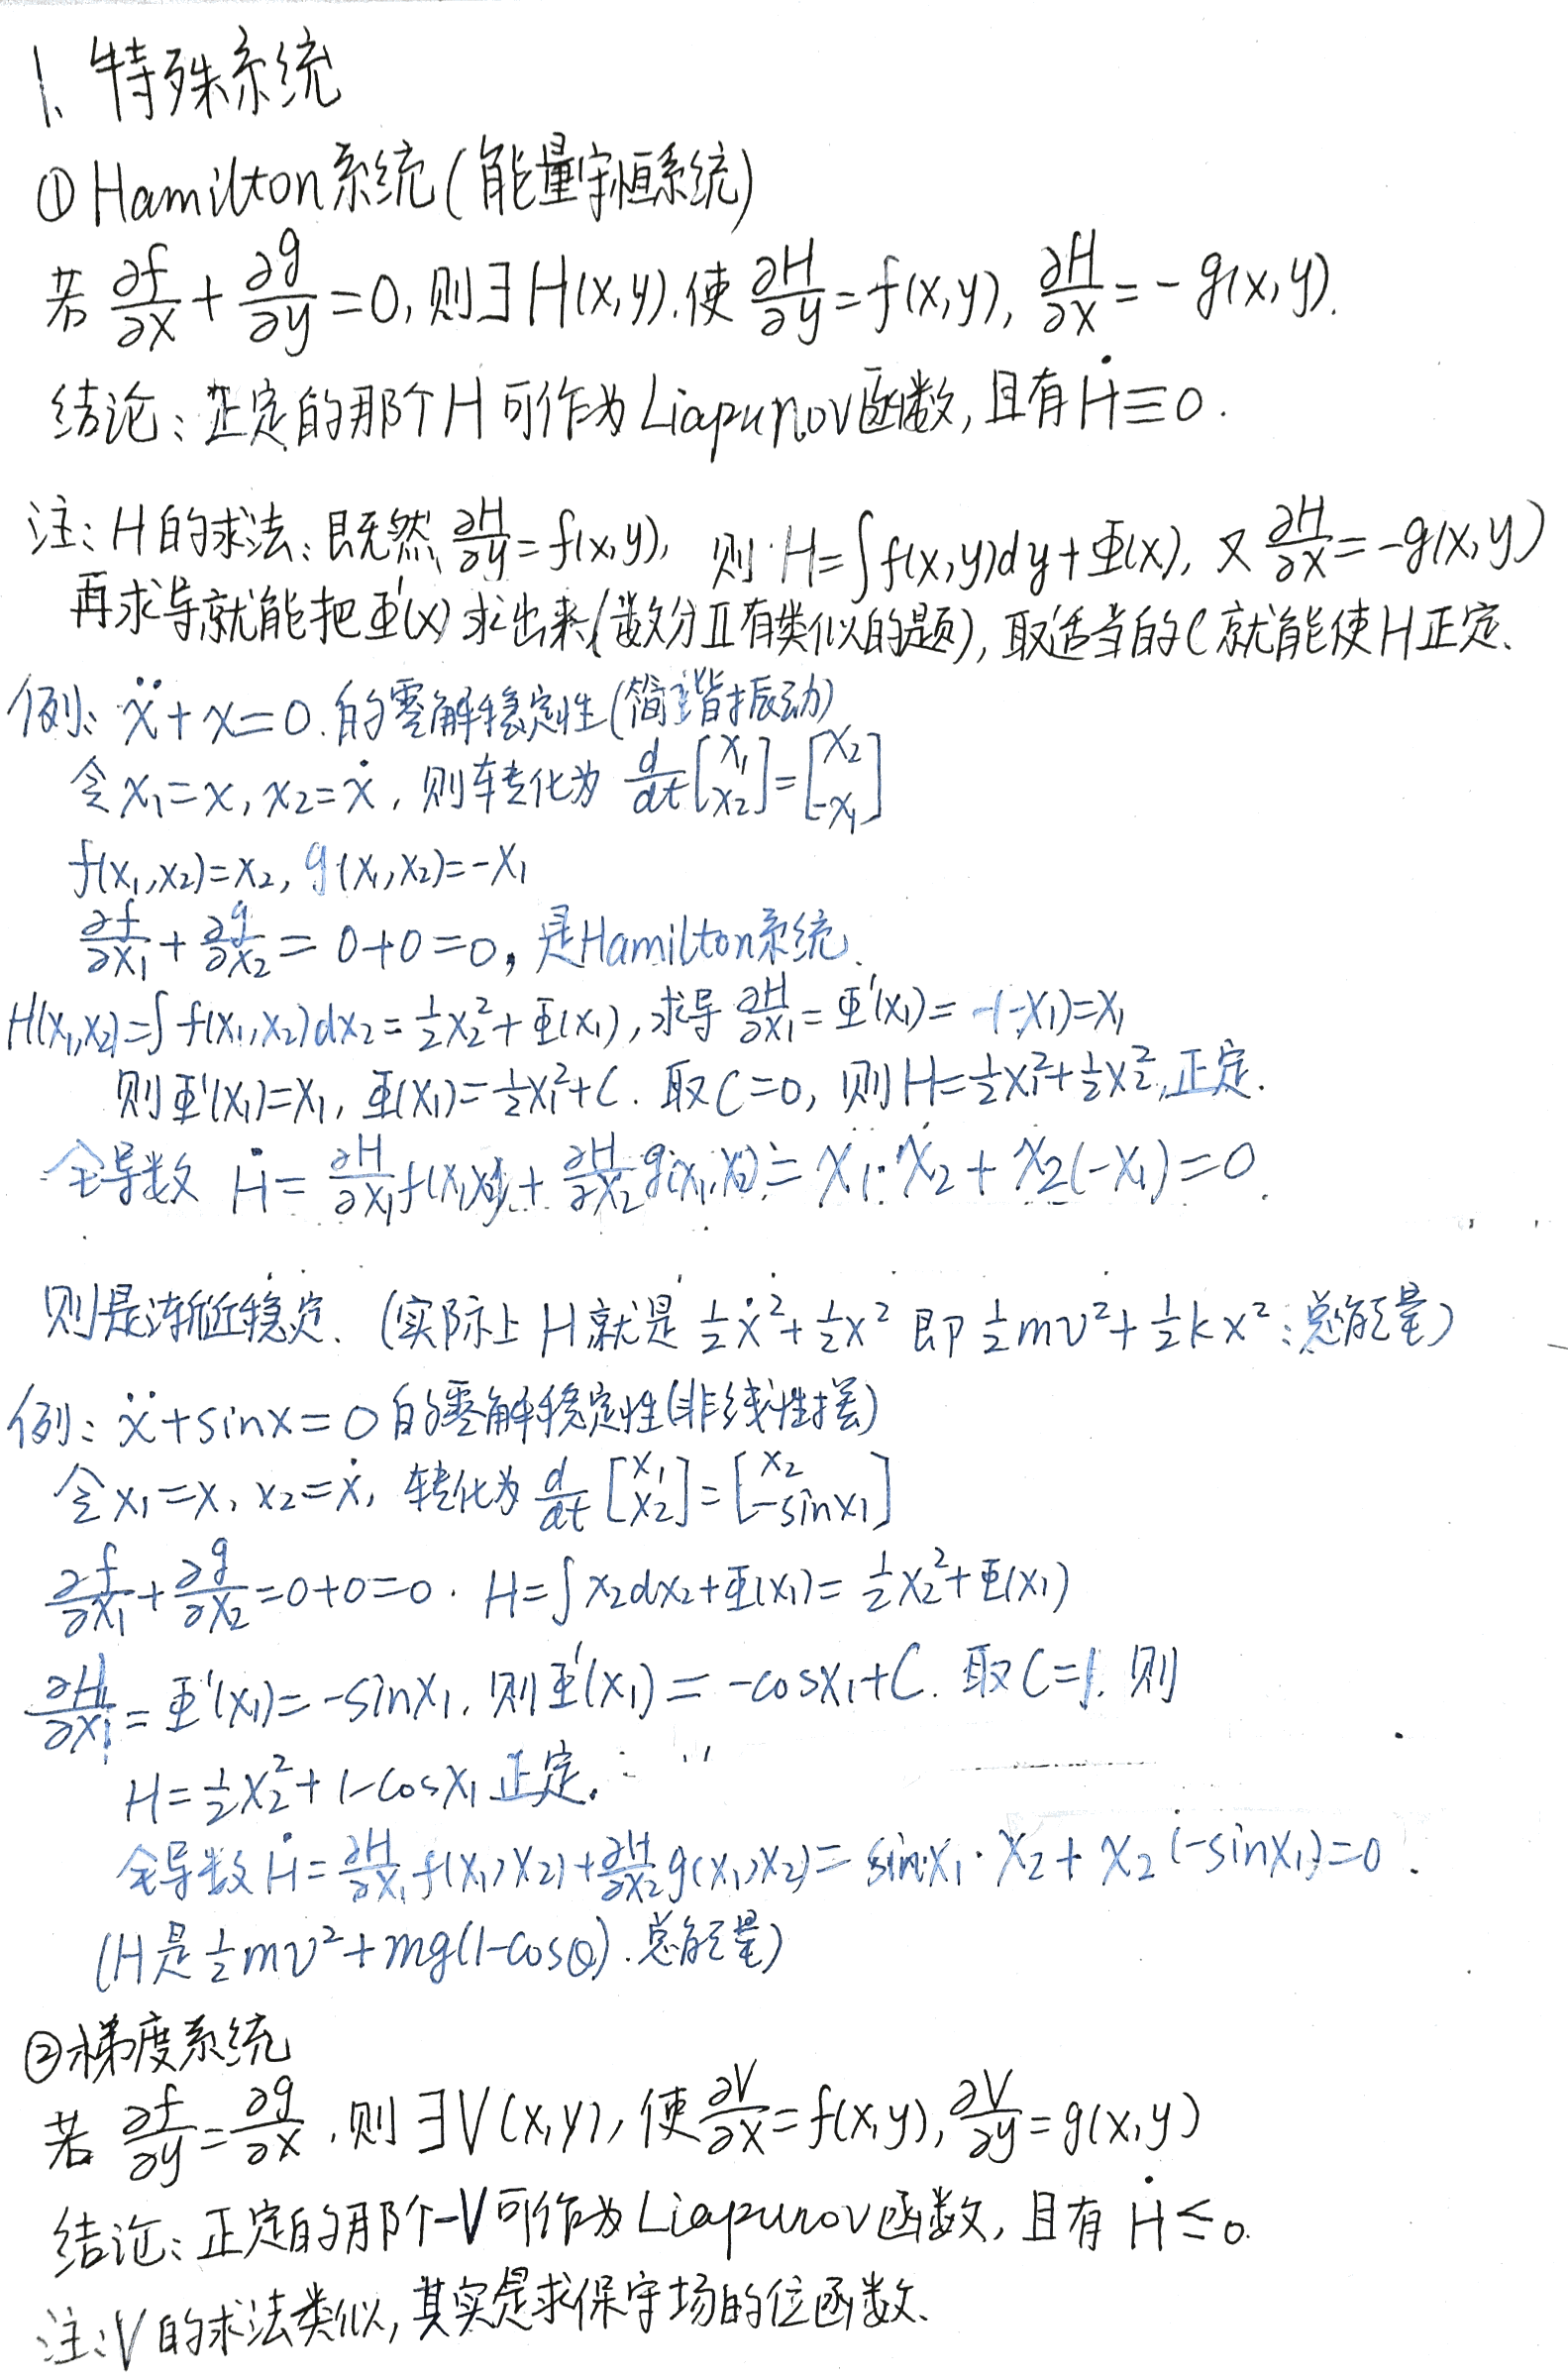 1. 特殊系统
① Hamilton系统(能量守恒系统)
若 ∂f/∂x + ∂g/∂y = 0, 则∃H(x,y).使 ∂H/∂y = f(x,y), ∂H/∂x = -g(x,y).
结论: 正定的那个H可作为Liapunov函数, 且有Ḣ≡0.
注: H的求法: 既然 ∂H/∂y = f(x,y), 则 H=∫f(x,y)dy+Φ(x), 又 ∂H/∂x = -g(x,y)
再求导就能把Φ'(x)求出来(数分Ⅱ有类似的题), 取适当的C就能使H正定.
例: ẍ+x=0.的零解稳定性(简谐振动)
令x₁=x, x₂=ẋ, 则转化为 d/dt [x₁ x₂] = [x₂ -x₁]
f(x₁,x₂)=x₂, g(x₁,x₂)=-x₁
∂f/∂x₁ + ∂g/∂x₂ = 0+0=0, 是Hamilton系统.
H(x₁,x₂)=∫f(x₁,x₂)dx₂ = ½x₂²+Φ(x₁), 求导 ∂H/∂x₁ = Φ'(x₁) = -(-x₁)=x₁
则Φ'(x₁)=x₁, Φ(x₁)=½x₁²+C. 取C=0, 则H=½x₁²+½x₂², 正定.
全导数 Ḣ = ∂H/∂x₁ f(x₁,x₂) + ∂H/∂x₂ g(x₁,x₂) = x₁·x₂ + x₂(-x₁) = 0.
则是渐近稳定. (实际上H就是 ½ẋ²+½x² 即 ½mv²+½kx²: 总能量)
例: ẍ+sinx=0的零解稳定性(非线性摆)
令x₁=x, x₂=ẋ, 转化为 d/dt [x₁ x₂] = [x₂ -sinx₁]
∂f/∂x₁ + ∂g/∂x₂ = 0+0=0. H=∫x₂dx₂+Φ(x₁) = ½x₂²+Φ(x₁)
∂H/∂x₁ = Φ'(x₁) = -sinx₁, 则Φ'(x₁) = -cosx₁+C. 取C=1. 则
H=½x₂²+1-cosx₁ 正定.
全导数Ḣ = ∂H/∂x₁ f(x₁,x₂) + ∂H/∂x₂ g(x₁,x₂) = sinx₁·x₂ + x₂(-sinx₁) = 0.
(H是½mv²+mg(1-cosθ).总能量)
②梯度系统
若 ∂f/∂y = ∂g/∂x, 则∃V(x,y), 使 ∂V/∂x = f(x,y), ∂V/∂y = g(x,y)
结论: 正定的那个-V可作为Liapunov函数, 且有 Ḣ≤0.
注: V的求法类似, 其实是求保守场的位函数.